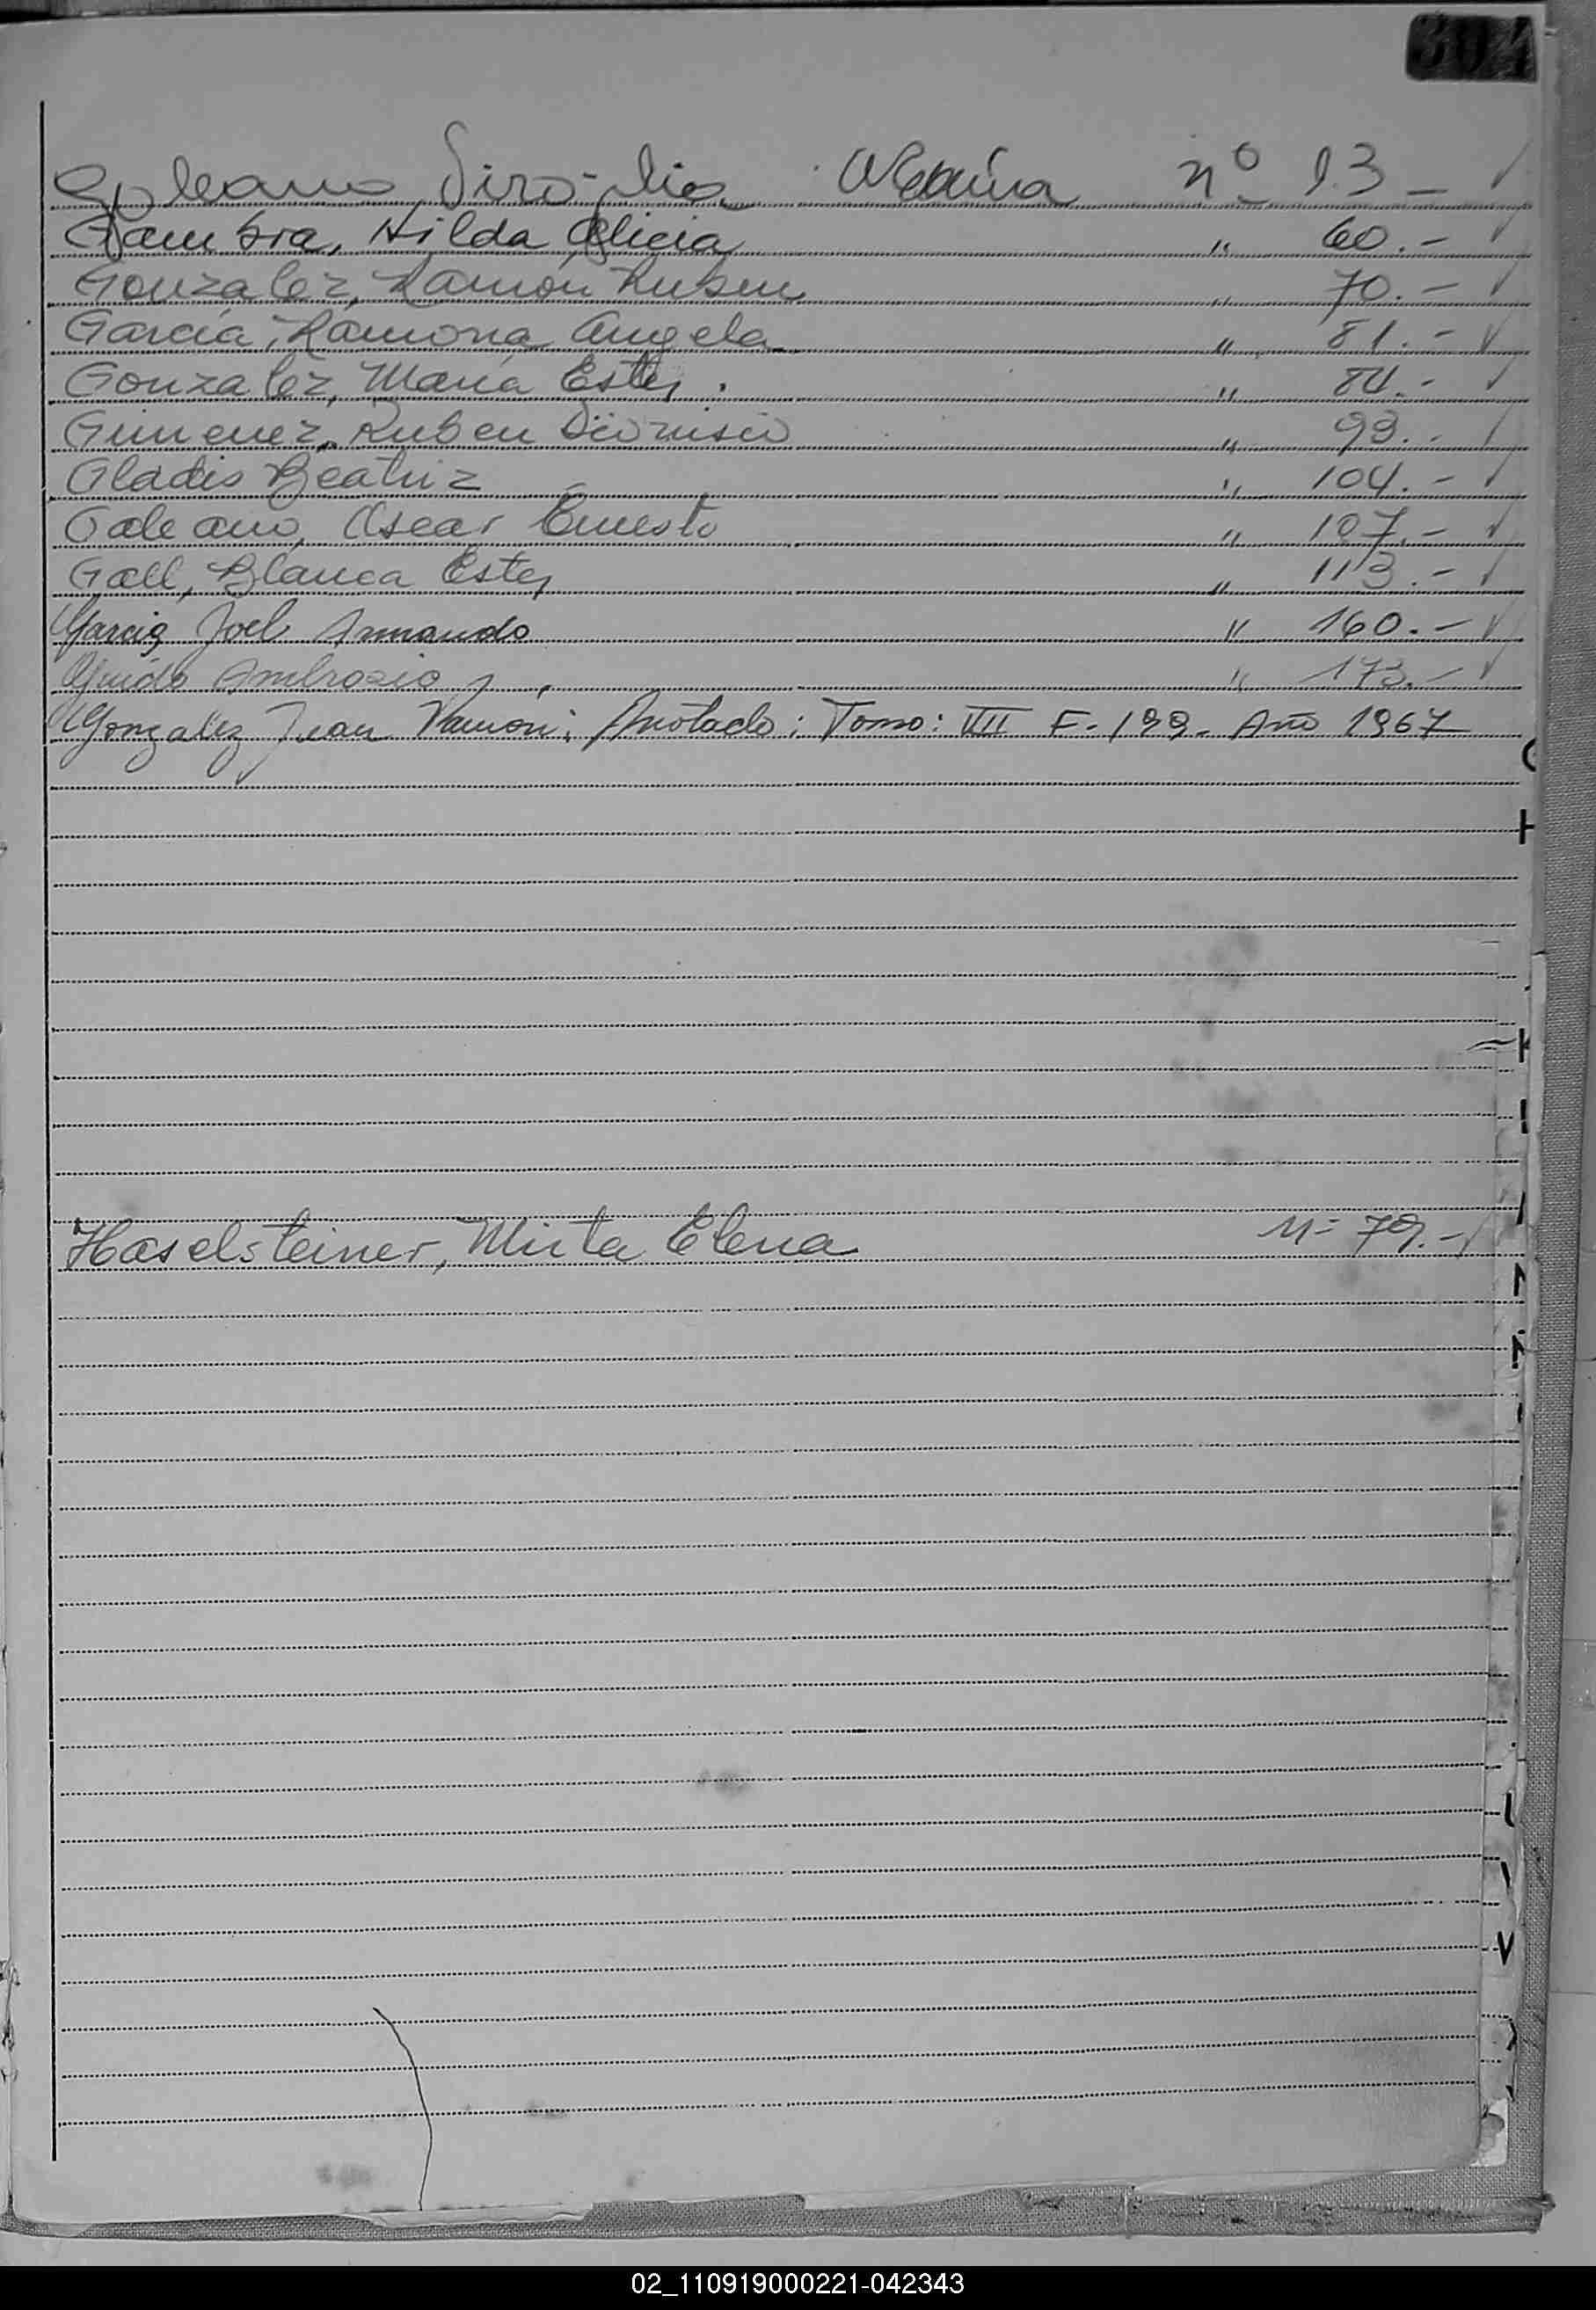 304
Galeano Virgilia nº 13 - ✓
Gambra, Hilda Alicia " 60.- ✓
Gonzalez, Ramón Ruben " 70.- ✓
García, Ramona Angela " 81.- ✓
Gonzalez, María Ester " 84.- ✓
Gimenez, Ruben Dionisio " 93.- ✓
Gladis Beatriz " 104.- ✓
Galeano, Oscar Ernesto " 107.- ✓
Gall, Blanca Ester " 113.- ✓
Garcia Joel Armando " 160.- ✓
Guido Ambrosio " 173.- ✓
Gonzalez Juan Ramón; Anotado: Tomo: VII F- 199- Año 1967
Haselsteiner, Mirta Elena N= 79.- ✓
02_110919000221-042343